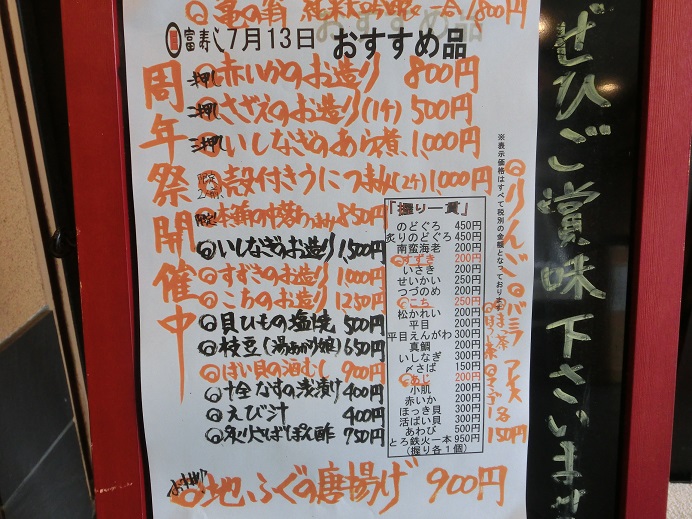 富の翁 純米大吟醸 一合 1800円
富寿し 7月13日 おすすめ品
周年祭開催中
一押し ◎赤いかのお造り 800円
二押し ◎さざえのお造り(1ケ) 500円
三押し ◎いしなぎのあら煮 1,000円
◎殻付きうにつまみ(2ケ) 1,000円
限定! 本鮪の中落ちつまみ 850円
◎いしなぎのお造り 1,500円
◎すずきのお造り 1,000円
◎こちのお造り 1250円
◎貝ひもの塩焼 500円
◎枝豆(湯あがり娘) 650円
◎ばい貝の酒むし 900円
◎十全なすの浅漬け 400円
◎えび汁 400円
◎炙りさばぽん酢 750円
お押し! ◎地ふぐの唐揚げ 900円
「握り一貫」
のどぐろ 450円
炙りのどぐろ 450円
南蛮海老 200円
◎すずき 200円
いさき 200円
せいかい 250円
つづのめ 200円
◎こち 250円
松かれい 200円
平目 200円
平目えんがわ 300円
真鯛 200円
いしなぎ 300円
〆さば 150円
◎あじ 200円
小肌 200円
赤いか 200円
ほっき貝 300円
活ばい貝 300円
あわび 500円
とろ鉄火一本 950円
(握り各1個)
※表示価格はすべて税別の金額となっております
◎りんご ◎バニラアイス
各150円
ぜひご賞味下さいませ